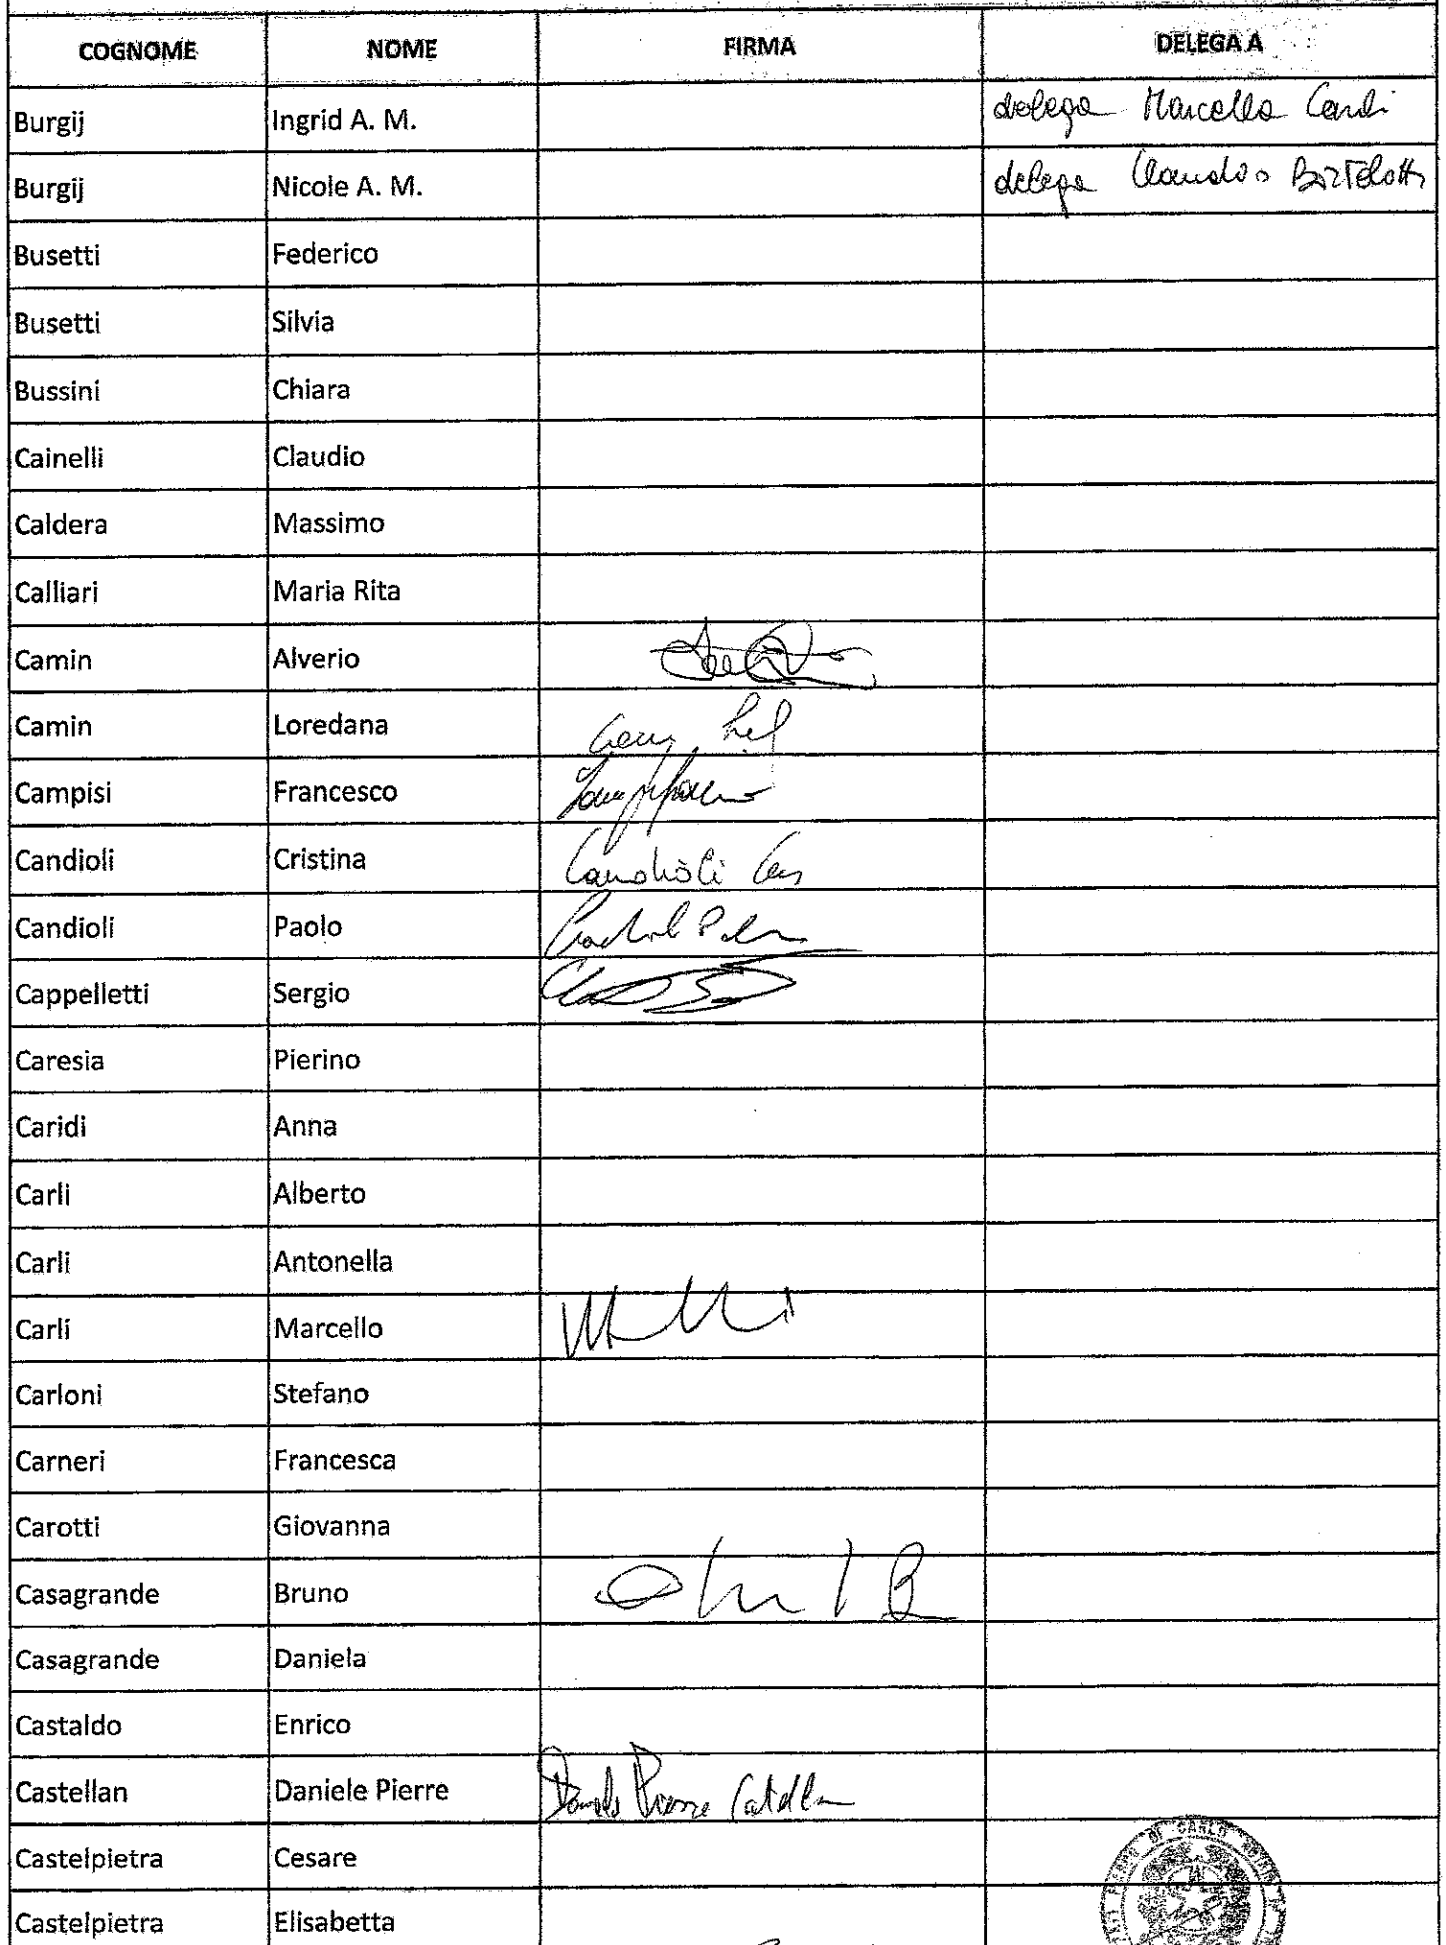 COGNOME NOME FIRMA DELEGA A
Burgij Ingrid A. M. delega Marcella Cardi
Burgij Nicole A. M. delega Claudio Bortolotti
Busetti Federico
Busetti Silvia
Bussini Chiara
Cainelli Claudio
Caldera Massimo
Calliari Maria Rita
Camin Alverio
Camin Loredana
Campisi Francesco
Candioli Cristina Candioli Cris
Candioli Paolo
Cappelletti Sergio
Caresia Pierino
Caridi Anna
Carli Alberto
Carli Antonella
Carli Marcello
Carloni Stefano
Carneri Francesca
Carotti Giovanna
Casagrande Bruno
Casagrande Daniela
Castaldo Enrico
Castellan Daniele Pierre Daniele Pierre Castellan
Castelpietra Cesare
DI CARLO
Castelpietra Elisabetta